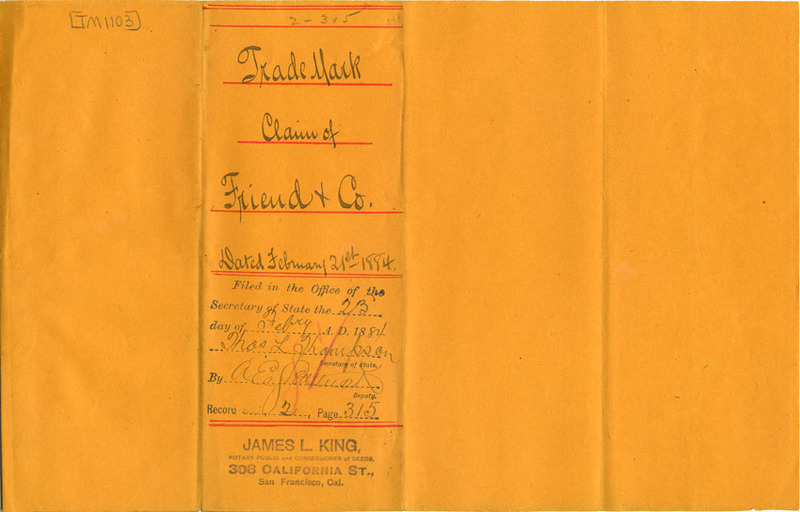 [TM1103]
2-315
Trade Mark
Claim of
Friend & Co.
Dated February 21st 1884.
Filed in the Office of the
Secretary of State the 23
day of Febry A.D. 1884
Thos L Thompson
Secretary of State.
By
Deputy.
Record 2, Page 315
JAMES L. KING,
NOTARY PUBLIC and COMMISSIONER of DEEDS,
308 CALIFORNIA ST.,
San Francisco, Cal.